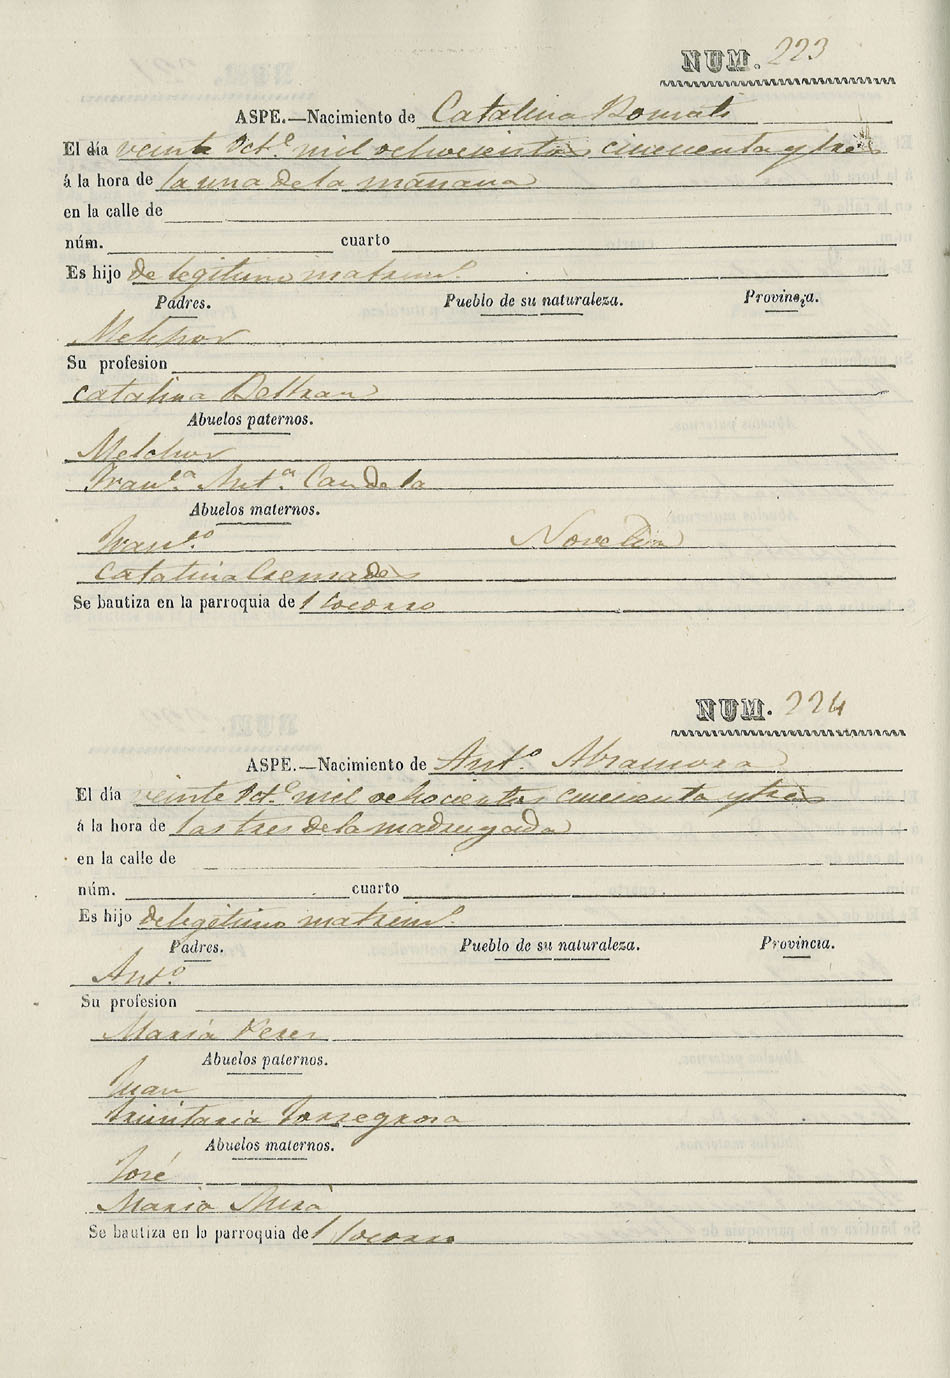 NUM. 223
ASPE.—Nacimiento de Catalina Bomati
El día veinte Oct.e mil ochocientos cincuenta y tres
á la hora de la una de la mañana
en la calle de
núm. cuarto
Es hijo de legitimo matrim.l
Padres. Pueblo de su naturaleza. Provincia.
Melchor
Su profesion
Catalina Beltran
Abuelos paternos.
Melchor
Fran.ca Ant.a Candela
Abuelos maternos.
Fran.co Novelda
Catalina Cremades
Se bautiza en la parroquia de l Socorro
NUM. 224
ASPE.—Nacimiento de Ant.o
El día veinte Oct.e mil ochocientos cincuenta y tres
á la hora de las tres de la madrugada
en la calle de
núm. cuarto
Es hijo de legitimo matrim.l
Padres. Pueblo de su naturaleza. Provincia.
Ant.o
Su profesion
Maria Perez
Abuelos paternos.
Juan
Trinitaria Torregrosa
Abuelos maternos.
José
Maria Mira
Se bautiza en la parroquia de l Socorro